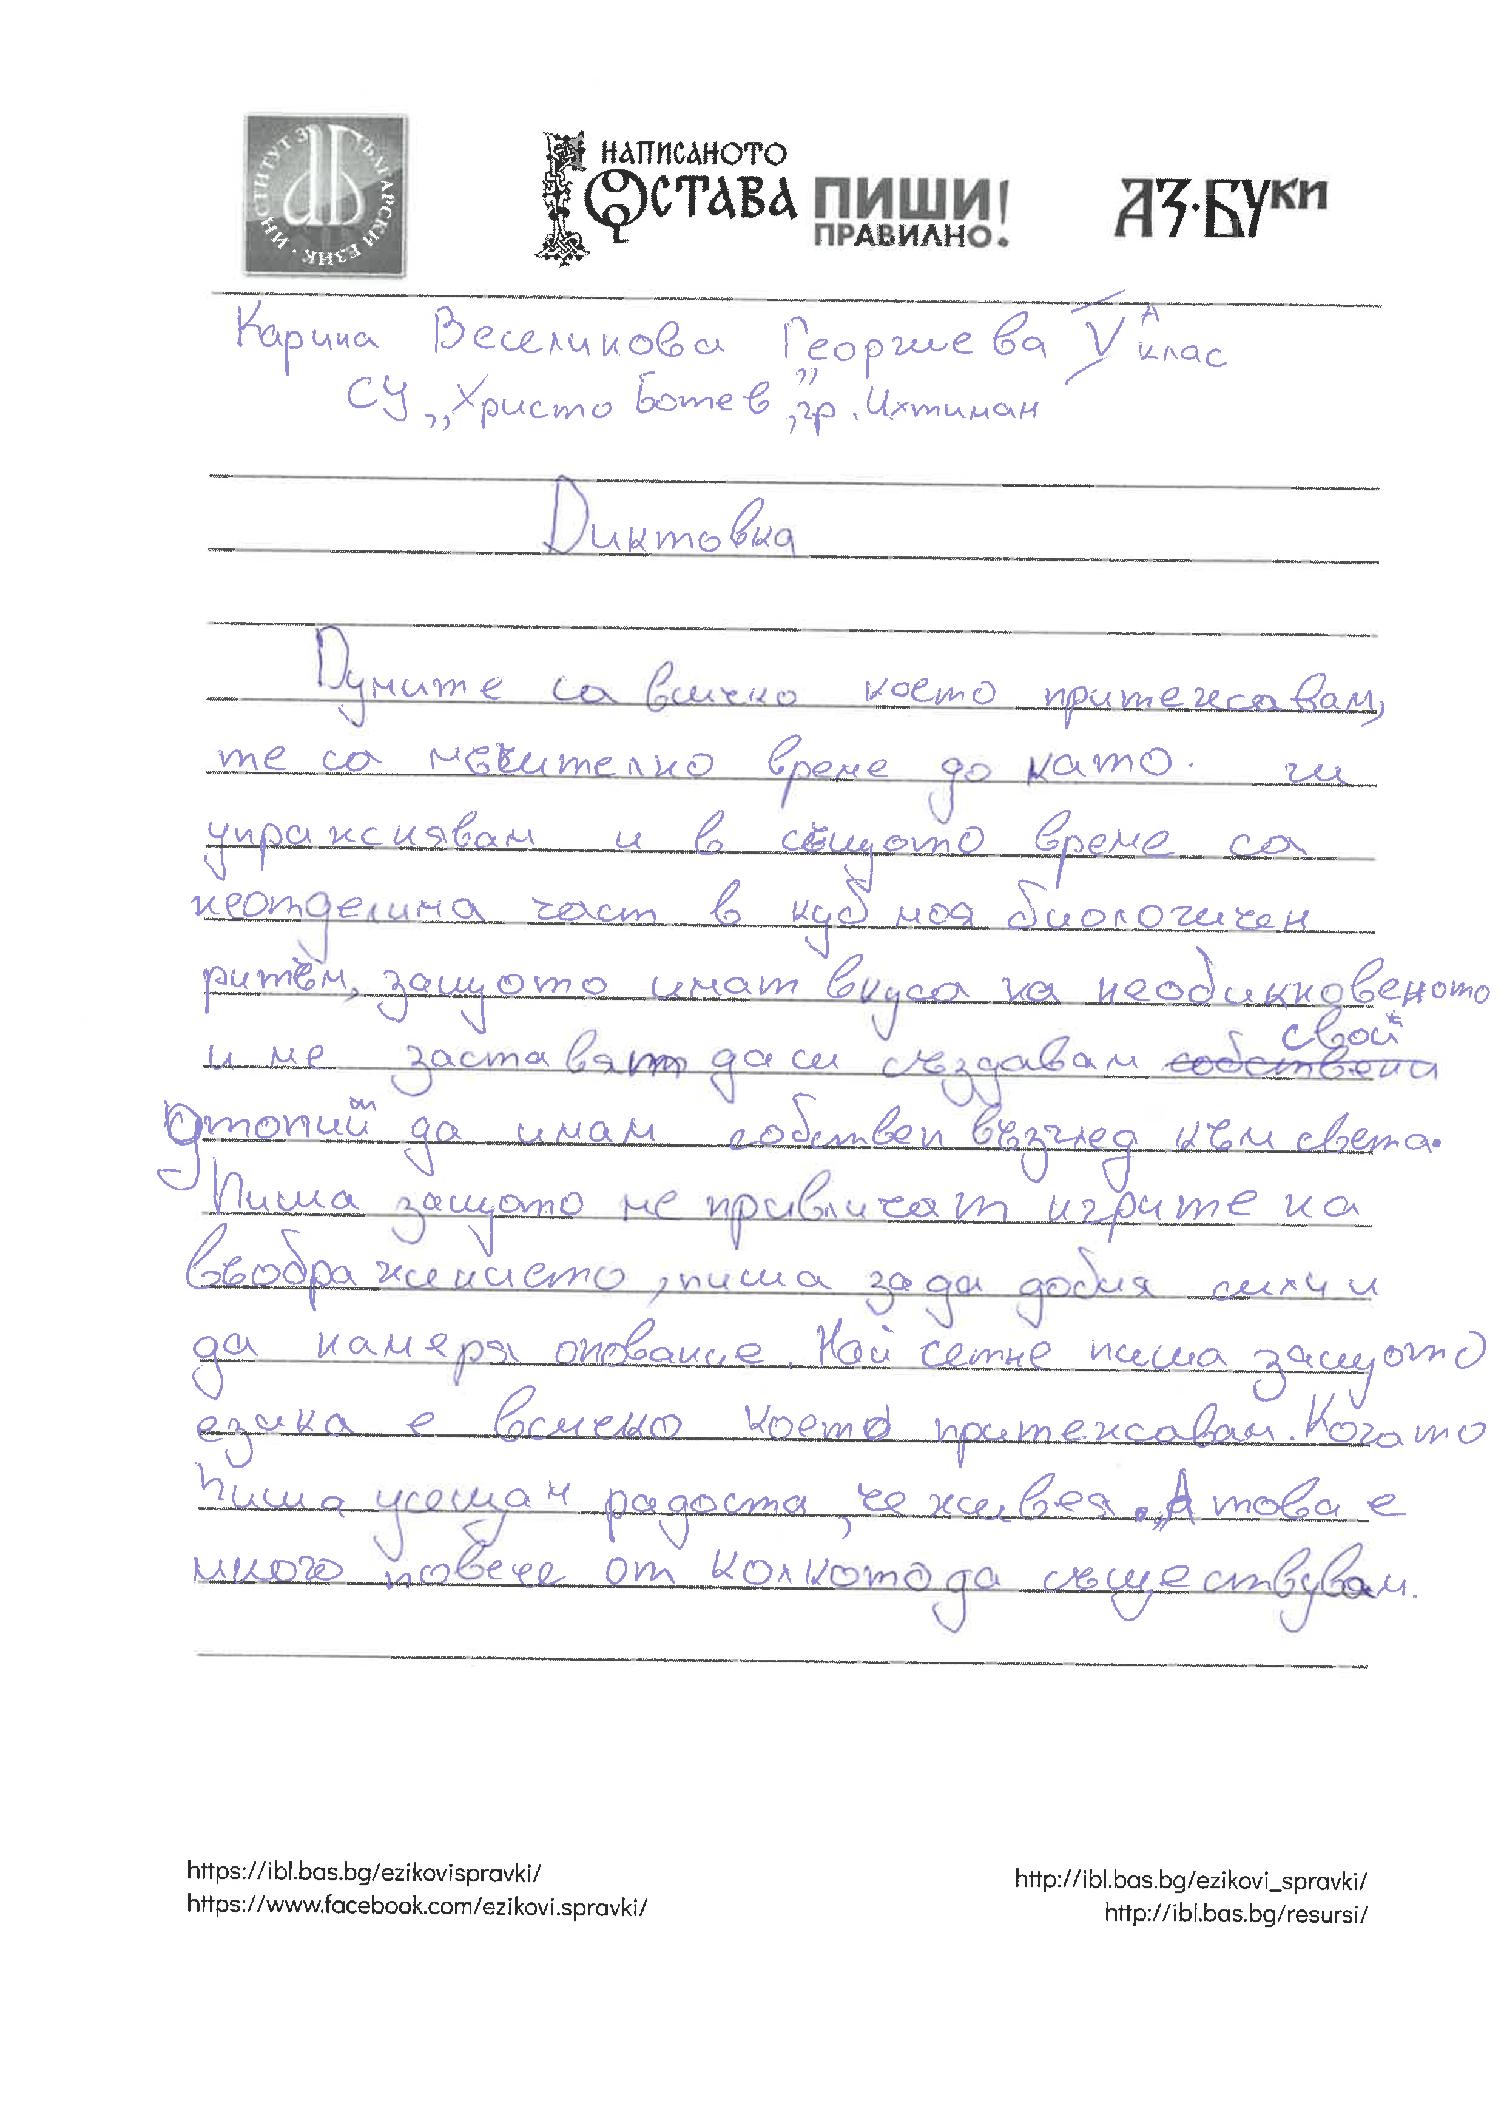 ИНСТИТУТ ЗА БЪЛГАРСКИ ЕЗИК
НАПИСАНОТО
ОСТАВА ПИШИ!
ПРАВИЛНО.
АЗ·БУКИ
Карина Веселинова Георгиева V А клас
СУ „Христо Ботев”, гр. Ихтиман
Диктовка
Думите са всичко което притежавам,
те са мечително време до като. ги
упражнявам и в същото време са
неотделима част в моя биологичен
ритъм, защото имат вкуса на необикновеното
и ме заставят да си създавам собствена свой
утопий да имам собствен възглед към света.
Пиша защото ме привличат игрите на
въображението, пиша за да добия сили и
да намеря опование. Най сетне пиша защото
езика е всичко което притежавам. Когато
пиша усещам радоста, че живея. „А това е
много повече от колкото да съществувам.
https://ibl.bas.bg/ezikovispravki/
https://www.facebook.com/ezikovi.spravki/
http://ibl.bas.bg/ezikovi_spravki/
http://ibl.bas.bg/resursi/